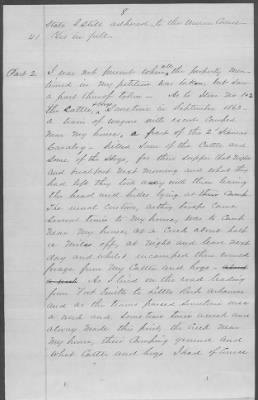 8
State I still adhered to the Union Cause
41 Yes in full.
Part 2 I was not present when all the property men
tioned in my petition was taken, but saw
a part thereof taken - As to Item No 1 & 2
the Cattle, & Hogs, Sometime in September 1863 -
a train of wagons with escort camped
near my house, a part of the 2d Kansas
Cavalry - killed some of the Cattle and
some of the Hogs, for their supper that night
and breakfast next morning and what they
had left they took away with them leaving
the head and hides lying at their Camp
The usual custom, as they troops came
several times to my house, was to Camp
near my house, at a Creek about half
a miles off, at night and leave next
day and whilst encamped then would
forage from my Cattle and hogs -
As I lived on the road leading
from Fort Smith to Little Rock Arkansas
and as the trains passed sometimes once
a week and sometimes twice a week and
always made this point, the Creek near
my house, their camping ground and
what Cattle and hogs I had of times